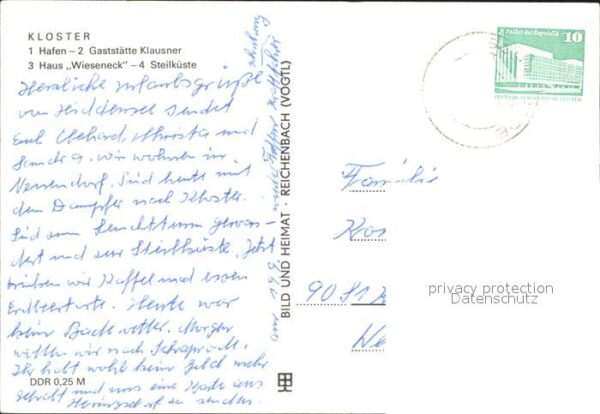 KLOSTER
1 Hafen – 2 Gaststätte Klausner
3 Haus „Wieseneck" – 4 Steilküste
Herzliche Urlaubsgrüße
von Hiddensee sendet
Euch Ekehard, Christa und
Sandra. Wir wohnen in
Neuendorf. Sind heute mit
dem Dampfer nach Kloster.
Sind zum Leuchtturm gewan-
dert und zur Steilküste. Jetzt
trinken wir Kaffee und essen
Erdbeertorte. Heute war
kein Badewetter. Morgen
wollen wir nach Schaprode.
Ihr habt wohl kein Geld mehr
gehabt und uns eine Karte aus
zu senden.
DDR 0,25 M
BILD UND HEIMAT · REICHENBACH (VOGTL)
10
Palast der Republik
DEUTSCHE DEMOKRATISCHE REPUBLIK
Familie
90 51
privacy protection
Datenschutz